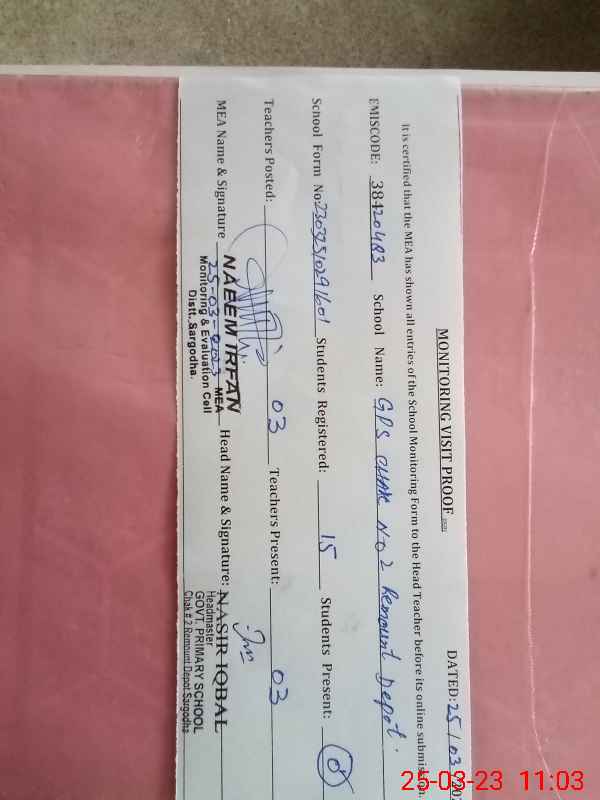 MONITORING VISIT PROOF
DATED: 25/03/202
It is certified that the MEA has shown all entries of the School Monitoring Form to the Head Teacher before its online submission.
EMISCODE: 38420483 School Name: GPS CHAK NO 2 Remount Depot.
School Form No: 230325/0291601 Students Registered: 15 Students Present: 0
Teachers Posted: 03 Teachers Present: 03
MEA Name & Signature NAEEM IRFAN Head Name & Signature: NASIR IQBAL
25-03-2023 MEA
Monitoring & Evaluation Cell
Distt. Sargodha.
Headmaster
GOVT. PRIMARY SCHOOL
Chak # 2 Remount Depot Sargodha
25-03-23 11:03